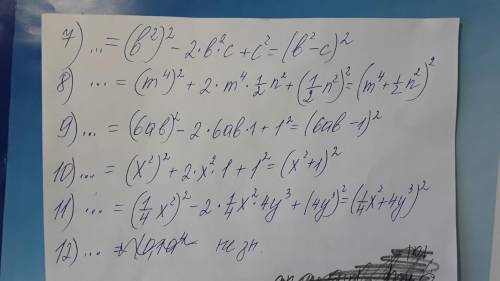 7) ... = (b²)² - 2·b²·c + c² = (b² - c)²
8) ... = (m⁴)² + 2·m⁴·½n² + (½n²)² = (m⁴ + ½n²)²
9) ... = (6ab)² - 2·6ab·1 + 1² = (6ab - 1)²
10) ... = (x²)² + 2·x²·1 + 1² = (x² + 1)²
11) ... = (¼x²)² - 2·¼x²·4y³ + (4y³)² = (¼x² + 4y³)²
12) ... не зн